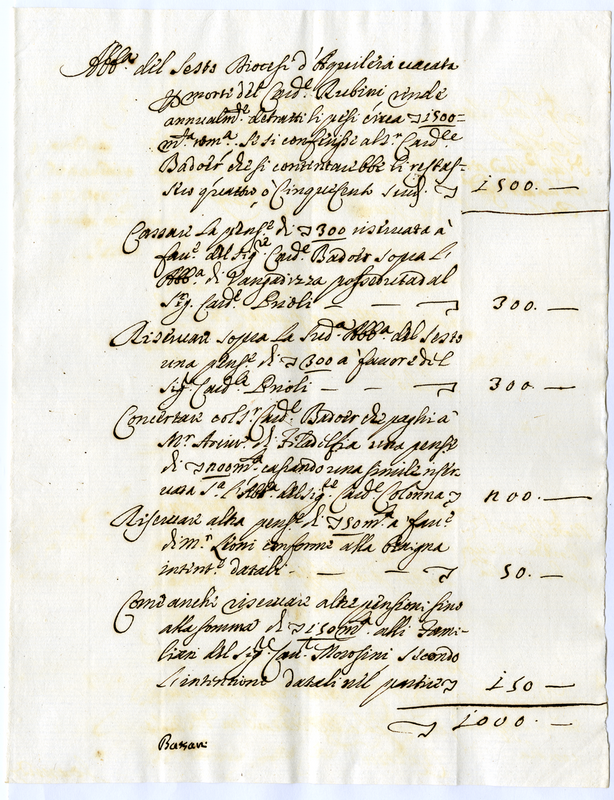 Abb.ª del Sesto Diocesi d'Aquileia vacata
morte del Card.e Rubini rende
annualm.te detratti li pesi circa 1500
m.ta rom.a se si conferisse al S.r Card.le
Badoer che si contentarebbe li restas-
sero quattro, o Cinquecento scudi 1500. —
Cassare la pens.e di 300 riservata à
fau.e del Sig.e Card.e Badoer sopra l'
Abb.a di Vangadizza posseduta dal
Sig. Card.e Prioli — — 300. —
Riservare sopra la Sud.a Abb.a del Sesto
una pens.e di 300 a' favore del
Sig. Card.le Prioli — — — 300 —
Concertare col S.r Card.e Badoer che paghi à
M.r Arciv.o di Filadelfia una pens.e
di 200 m.ta cassando una simile riser-
uata del Sig.e Card.e Colonna 200. —
Riservare altra pens.e di 50 m.ta a fau.e
di M.r Lioni conforme alla benigna
intent.e datali — — — 50. —
Come anche riservare altre pensioni sino
alla somma di 150 m.ta alli Fami-
liari del Sig. Card. Morosini secondo
l'intentione datali nel partire 150 —
1000. —